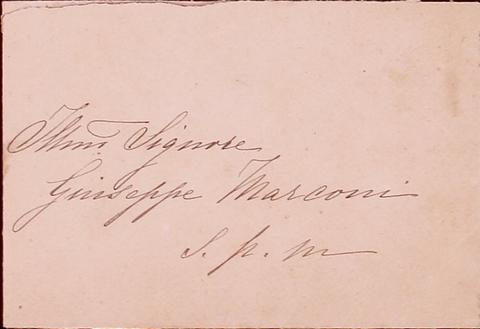 Illmo Signore
Giuseppe Marconi
S. p. m